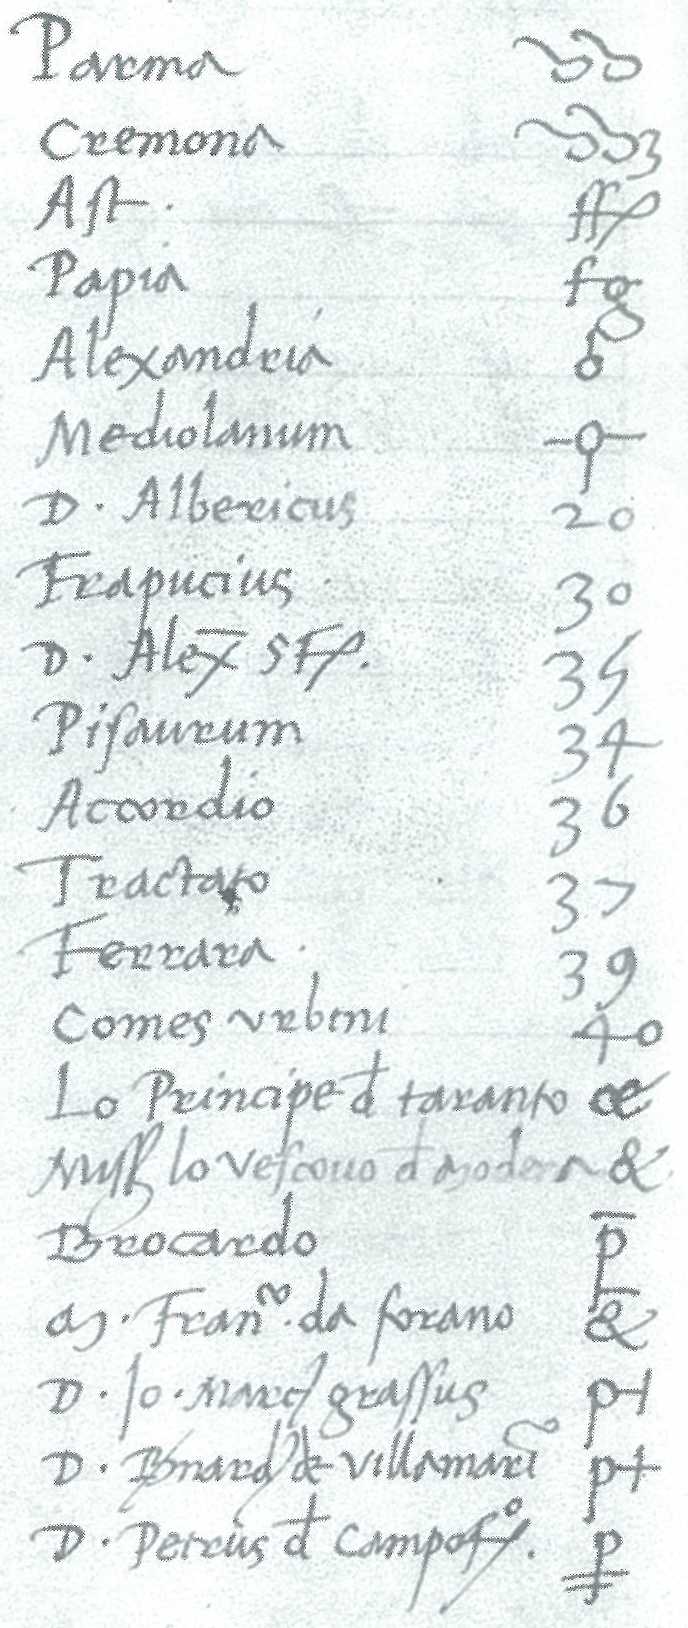 Parma
Cremona
Ast.
Papia
Alexandria
Mediolanum
D. Albericus 20
Frapucius 30
D. Alex̄ Sf 35
Pisaurum 34
Acordio 36
Tractato 37
Ferrara. 39
Comes urbini 40
Lo Principe d taranto æ
lo Vescovo d modena &
Brocardo p̄
Franco. da forano &
D. Jo. Marc grassus
D. Bnard d villamari
D. Perrus d Campof